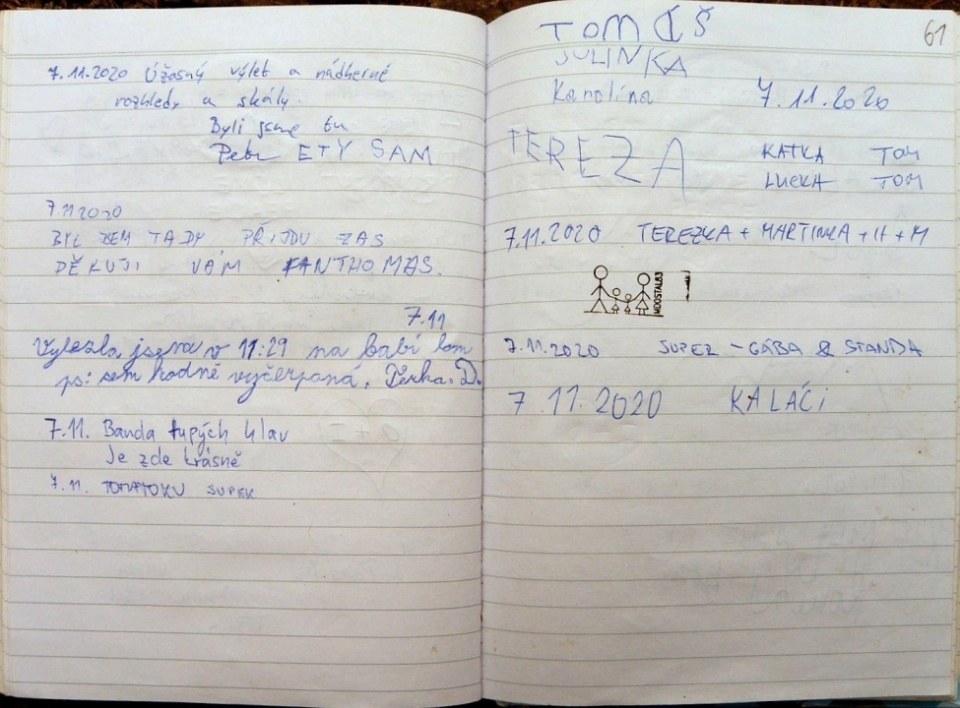 7.11.2020 Úžasný výlet a nádherné
rozhledy a skály.
Byli jsme tu
Petr ETY SAM
7.11 2020
BYL SEM TADY PŘIJDU ZAS
DĚKUJI VÁM FANTHOMAS.
7.11
Vylezla jsem v 11:29 na babí lom
ps: sem hodně vyčerpaná. Terka. D.
7.11. Banda tupých hlav
Je zde krásně
7.11. SUPER
61
TOMÁŠ
JULINKA
Karolína 7.11.2020
TEREZA
KATKA TOM
LUCKA TOM
7.11.2020 TEREZKA + MARTINKA + H + M
MDOSTAL83
7.11.2020 SUPER - GÁBA & STANDA
7.11.2020 KALÁČI
I + D